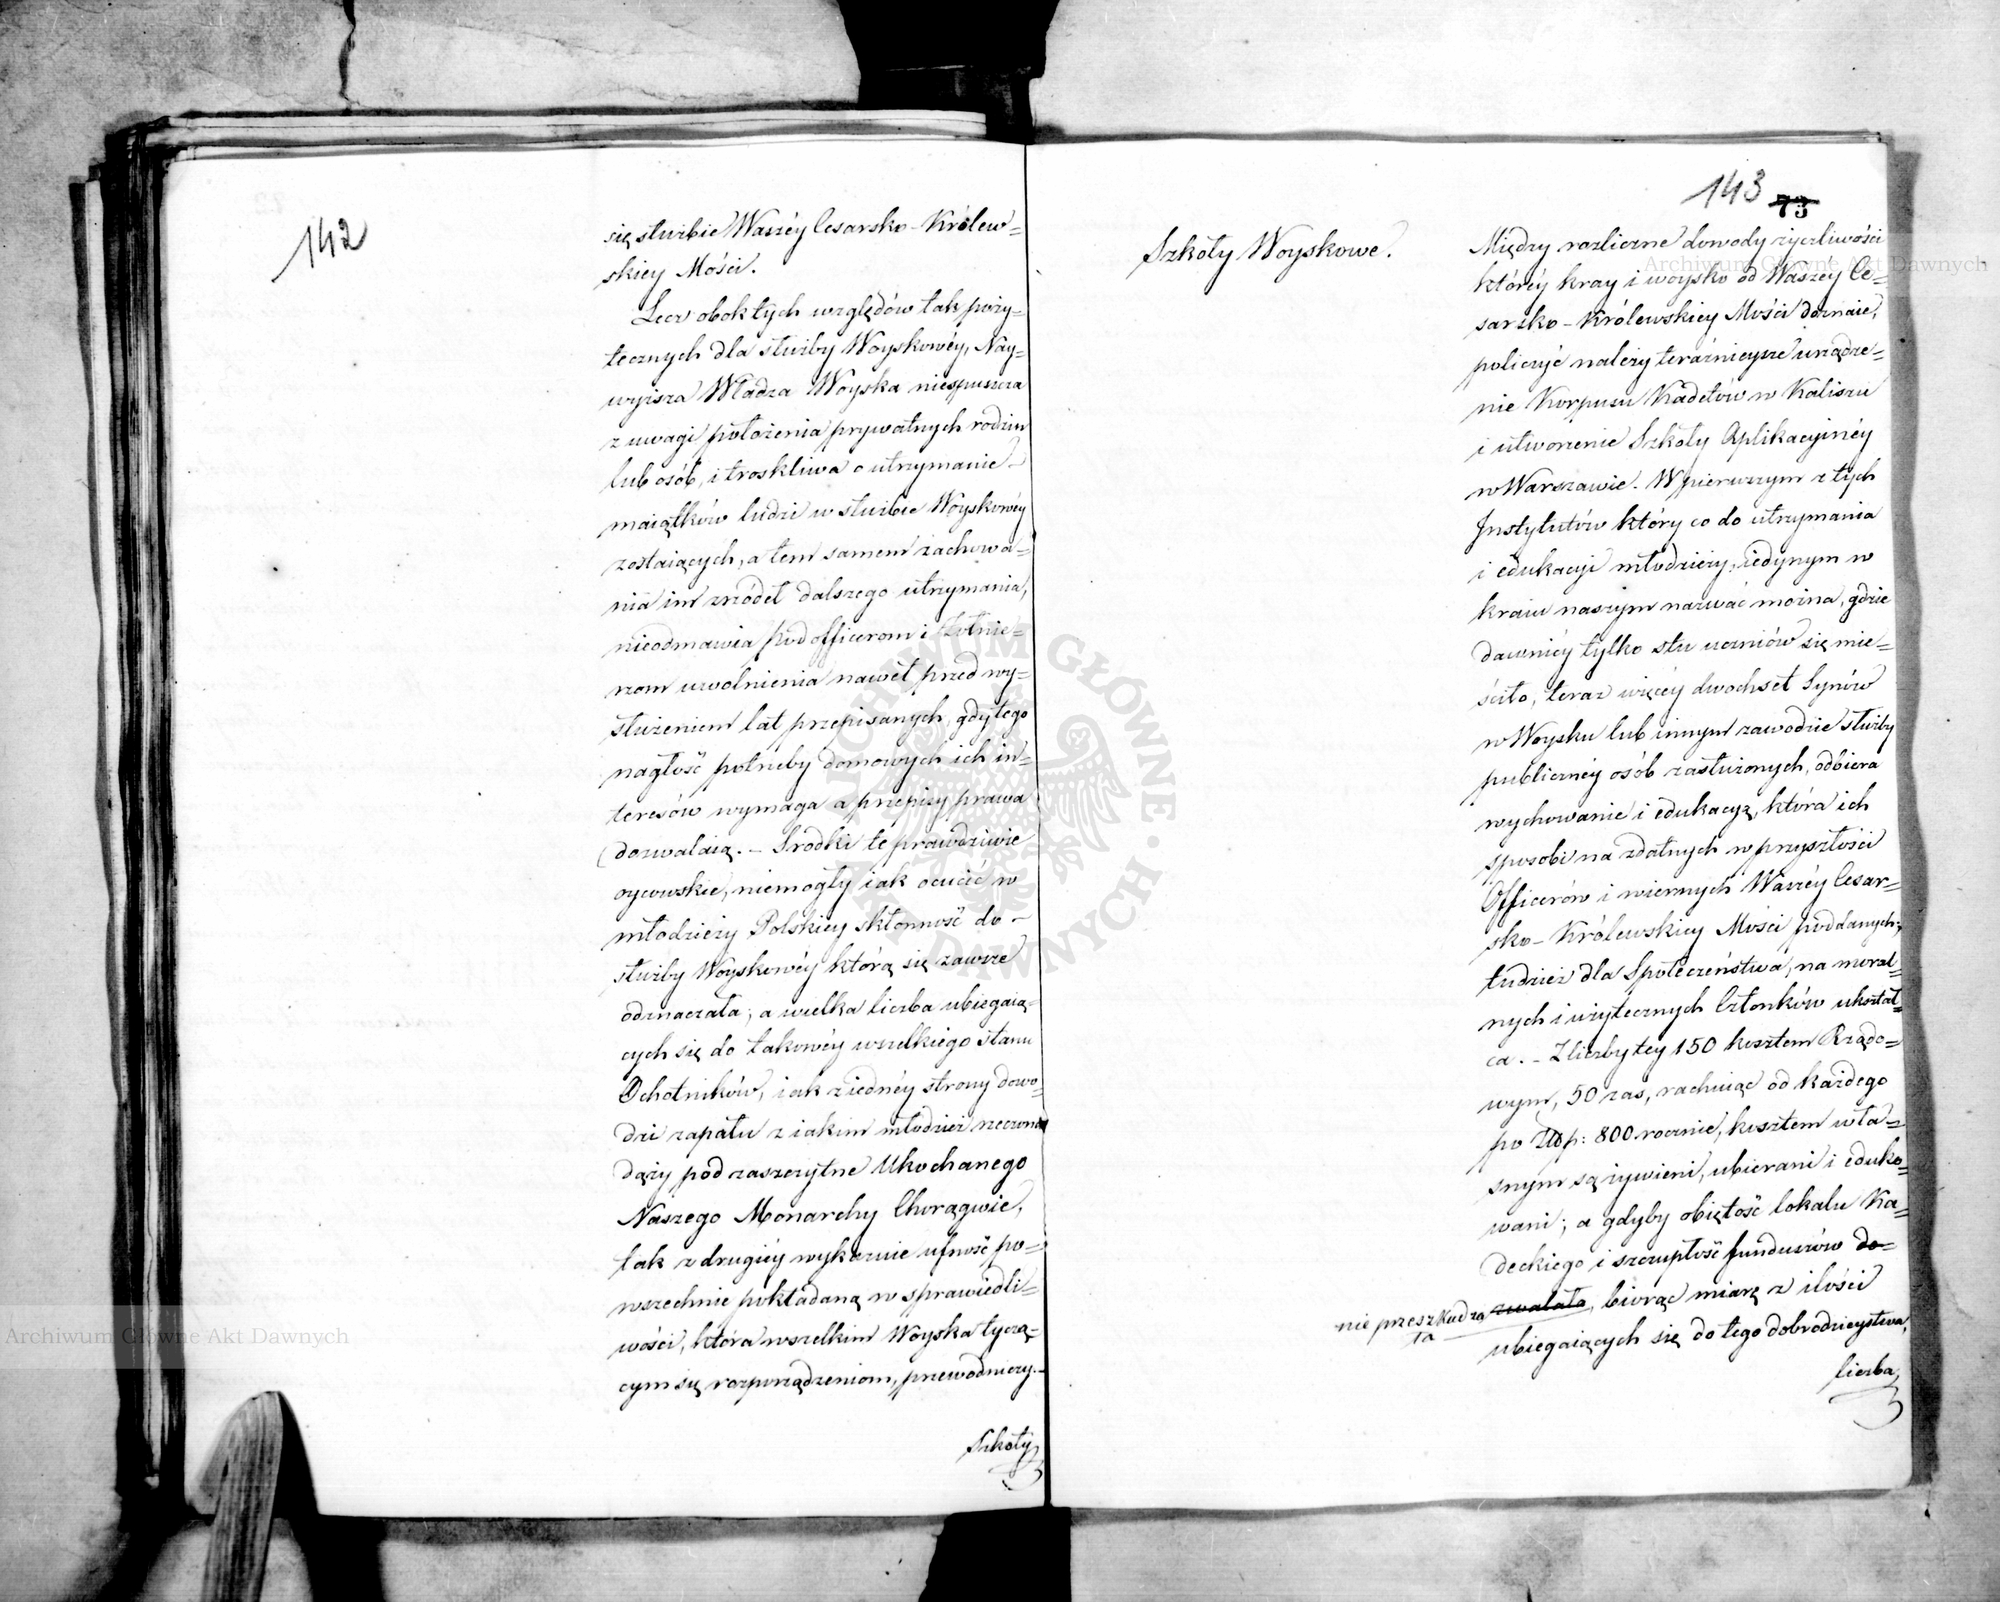 142
się służbie Waszéy Cesarsko-Królew=
skiey Mości.
Lecz obok tych względów tak poży=
tecznych dla służby Woyskowéy, Nay=
wyższa Władza Woyska niespuszcza
z uwagi położenia prywatnych rodzin
lub osób, i troskliwa o utrzymanie
maiątków ludzi w służbie Woyskowéy
zostaiących, a tem samem zachowa=
nia im zródeł dalszego utrzymania,
nieodmawia podofficerom i Żołnie=
rzom uwolnienia nawet przed wy=
służeniem lat przepisanych, gdy tego
nagłość potrzeby domowych ich in=
teresów wymaga a przepisy prawa
dozwalaią. – Srodki te prawdziwie
oycowskie, niemogły iak ocucić w
młodzieży Polskiey skłonność do –
służby Woyskowéy którą się zawsze
odznaczała; a wielka liczba ubiegaią=
cych się do takowéy wszelkiego stanu
Ochotników, iak z iednéy strony dowo=
dzi zapału z iakim młodzież rzeczona
dąży pod zaszczytne Ukochanego
Naszego Monarchy Chorągwie,
tak z drugiéy wykazuie ufność po=
wszechnie pokładaną w sprawiedli=
wości, która wszelkim Woyska tyczą=
cym się rozporządzeniom, przewodniczy. –
Szkoły
143 73
Szkoły Woyskowe.
Między rozliczne dowody życzliwości
któréy kray i woysko od Waszéy Ce=
sarsko-Królewskiey Mości doznaie,
policzyć należy teraźnieysze urządze=
nie Korpusu Kadetów w Kaliszu
i utworzenie Szkoły Aplikacyinéy
w Warszawie. W pierwszym z tych
Instytutów który co do utrzymania
i edukacyi młodzieży, iedynym w
kraiu naszym nazwać można, gdzie
dawniéy tylko stu uczniów się mie=
ściło, teraz więcéy dwochset Synów
w Woysku lub innym zawodzie służby
publicznéy osób zasłużonych, odbiera
wychowanie i edukacyą, która ich
sposobi na zdatnych w przyszłości
Officerów i wiernych Waszéy Cesar=
sko-Królewskiey Mości poddanych;
tudzież dla Społeczeństwa, na moral=
nych i użytecznych Członków ukształ=
ca. – Z liczby tey 150 kosztem Rządo=
wym, 50 zas, rachuiąc od każdego
po Złp: 800 rocznie, kosztem wła=
snym są żywieni, ubierani i eduko=
wani; a gdyby obiętość lokalu Ka=
deckiego i szczupłość funduszów do=
nie przeszkadza zwalała, biorąc miarę z ilości
ła
ubiegaiących się do tego dobrodzieystwa,
liczba
Archiwum Główne Akt Dawnych
Archiwum Główne Akt Dawnych
ARCHIWUM GŁÓWNE AKT DAWNYCH